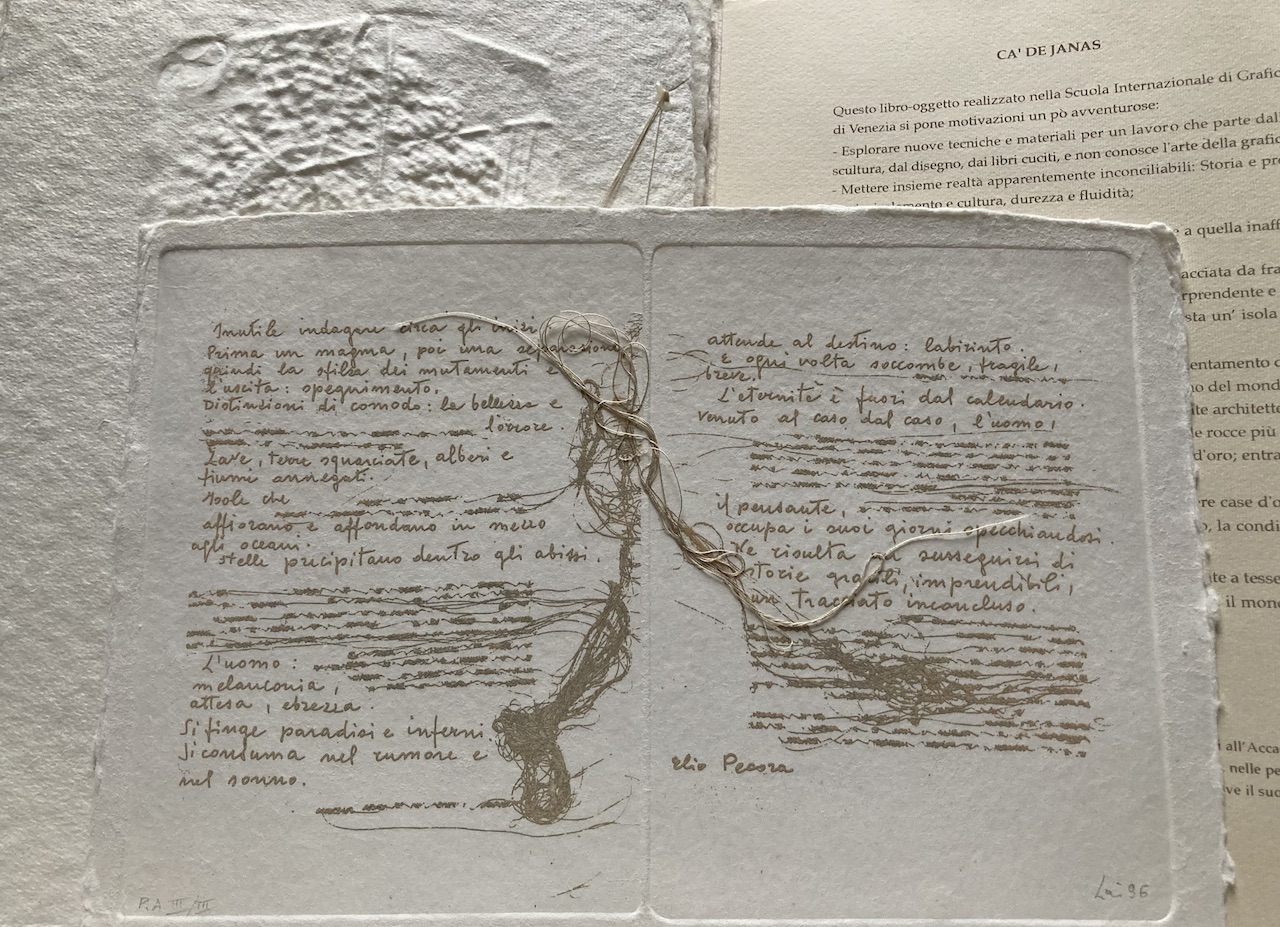 CA' DE JANAS
Questo libro-oggetto realizzato nella Scuola Internazionale di Grafic
di Venezia si pone motivazioni un pò avventurose:
- Esplorare nuove tecniche e materiali per un lavoro che parte dal
scultura, dal disegno, dai libri cuciti, e non conosce l'arte della grafic
- Mettere insieme realtà apparentemente inconciliabili: Storia e pre
e cultura, durezza e fluidità;
e a quella inaff
acciata da fra
rprendente e
sta un' isola
entamento
no del mond
ite architett
le rocce più
d'oro; entra
re case d'
o, la condi
ite a tesse
il mon
all'Acca
nelle pe
ve il suc
Inutile indagare circa gli inizi
Prima un magma, poi una separazione
quindi la sfilza dei mutamenti e
l'uscita: spegnimento.
Distinzioni di comodo: la bellezza e
l'orrore.
Lave, terre squarciate, alberi e
fiumi annegati.
Isole che
affiorano e affondano in mezzo
agli oceani.
stelle precipitano dentro gli abissi.
L'uomo:
melanconia,
attesa, ebrezza.
Si finge paradisi e inferni.
Si consuma nel rumore e
nel sonno.
attende al destino: labirinto.
E ogni volta soccombe, fragile,
breve.
L'eternità è fuori dal calendario.
Venuto al caso dal caso, l'uomo,
il pensante,
occupa i suoi giorni specchiandosi.
Ne risulta un susseguirsi di
storie gracili, imprendibili,
un tracciato inconcluso.
Elio Pecora
P.A III/III
Lai 96